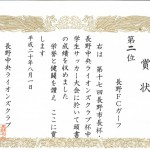 賞状
第二位
長野FCガーフ
右は第十七回長野市長杯・
長野中央ライオンズクラブ杯中
学生サッカー大会に於いて頭書
の成績を収めました
栄誉と健闘を讃え ここに賞
します
平成二十年八月一日
長野中央ライオンズクラブ